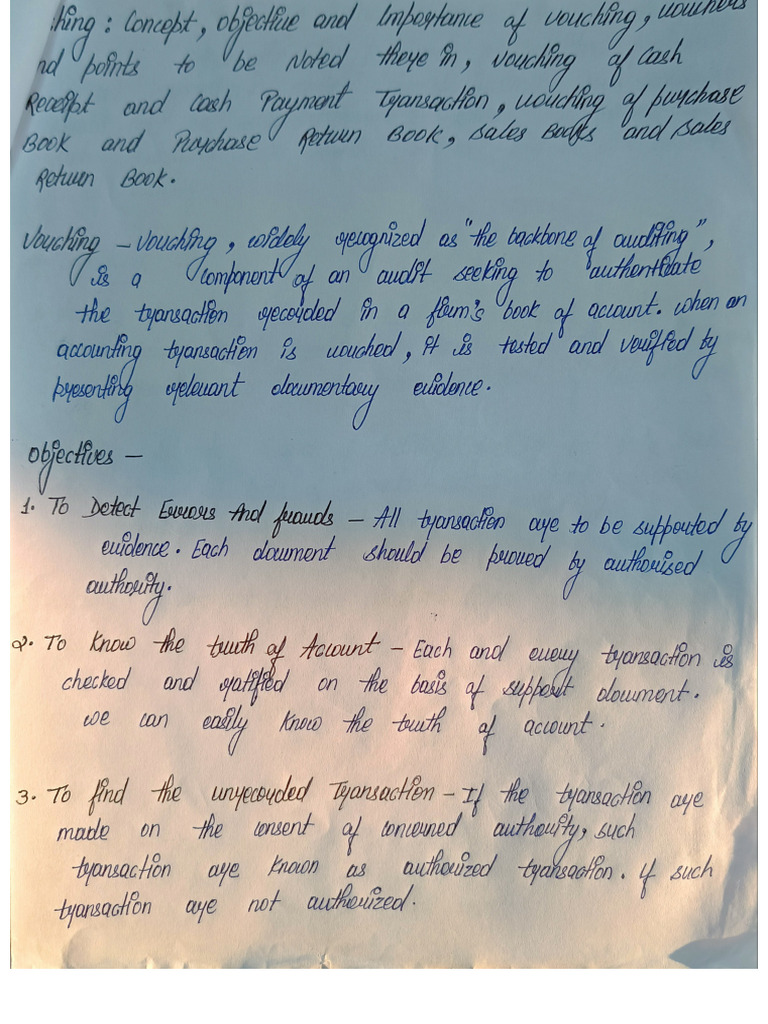 hing : Concept, objective and Importance of vouching, vouchers
nd points to be Noted there in, vouching of cash
Receipt and Cash Payment Transaction, vouching of purchase
Book and Purchase Return Book, Sales Books and Sales
Return Book.
Vouching – Vouching, widely recognized as "the backbone of auditing",
is a component of an audit seeking to authenticate
the transaction recorded in a firm's book of account. when an
accounting transaction is vouched, it is tested and verified by
presenting relevant documentary evidence.
Objectives –
1. To Detect Errors And frauds – All transaction are to be supported by
evidence. Each document should be proved by authorised
authority.
2. To Know the truth of Account – Each and every transaction is
checked and ratified on the basis of support document.
we can easily know the truth of account.
3. To find the unrecorded Transaction – If the transaction are
made on the consent of concerned authority, such
transaction are known as authorized transaction. if such
transaction are not authorized.